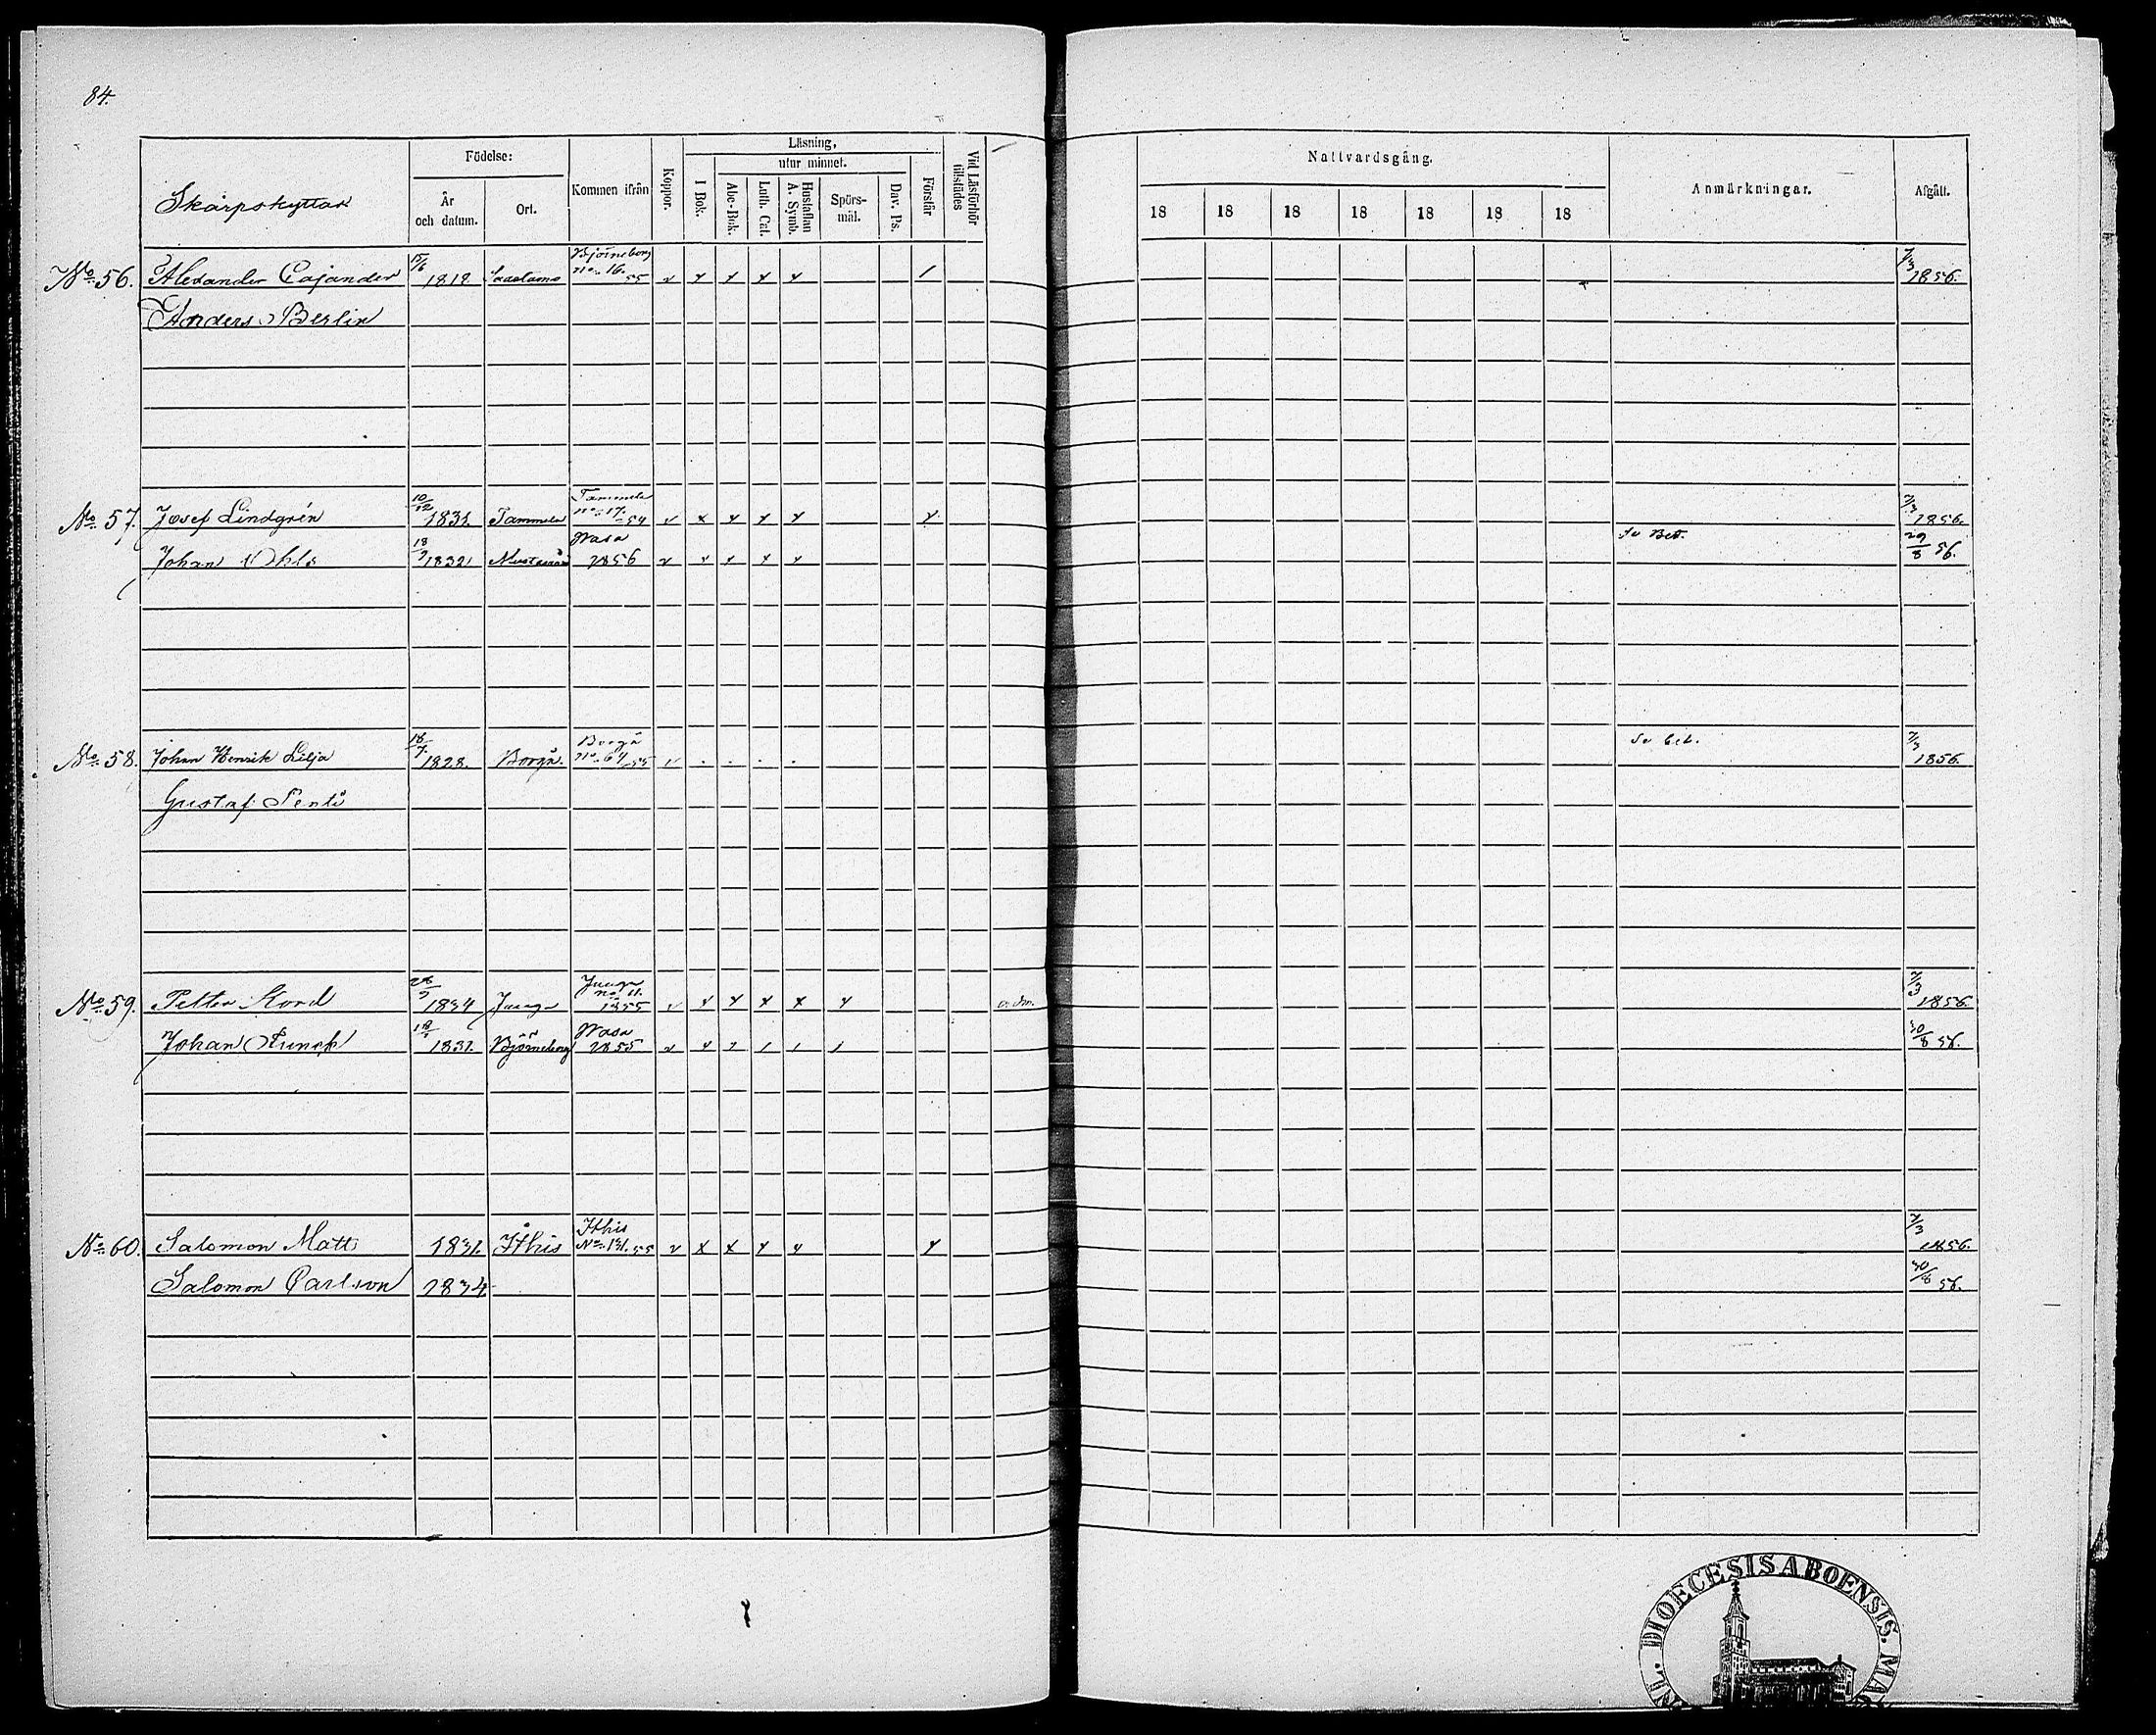 84.
Skarpskyttar
Födelse:
År och datum.
Ort.
Kommen ifrån
Koppor.
Läsning,
utur minnet.
I Bok.
Abc-Bok.
Luth. Cat.
Hustaflan A. Symb.
Spörs-mål.
Dav. Ps.
Förstår
Vid Läsförhör tillstädes
Nattvardsgång.
18 18 18 18 18 18 18
Anmärkningar.
Afgått.
No 56. Alexander Cajander 15/6 1818. Björneborg no 16. 55 v x x x x / 7/3 1856.
Anders Berlin
No 57. Josef Lindgrén 10/12 1831. Tammela Tammela no 17. 54 v x x x x x 7/3 1856.
Johan Ohls 18/9 1832 Mustasaari Wasa 1856 v x x x x Se Bet. 29/8 56.
No 58. Johan Henrik Lilja 18/7 1828. Borgå. Borgå no 64 55 v . . . . Se bet. 7/3 1856.
Gustaf Penti
No 59. Petter Kord 28/9 1834 Junga Junga no 11. 1855 v x x x x x 7/3 1856.
Johan Runek 1831. Björneborg Wasa 1855 v x / / / / 30/8 56.
No 60. Salomon Matts 1831. Ithis Ithis No 131. 55 v x x x x x 7/3 1856.
Salomon Carlson 1834 30/8 56.
DIOECESIS ABOENSIS.